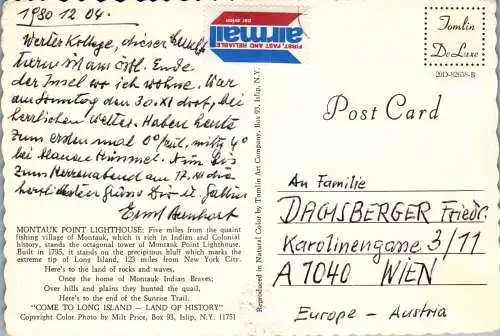 1980 12 04.
Werter Kollege, dieser Leucht
turm ist am östl. Ende
der Insel wo ich wohne. War
am Sonntag den 30.XI dort, bei
herrlichem Wetter. Haben heute
zum ersten mal 0° früh, mittg 4°
bei blauem Himmel. Nun bis
zum Herrenabend am 17.XII die
herzlichsten Grüsse Dir u. Gattin
Ernst
MONTAUK POINT LIGHTHOUSE: Five miles from the quaint
fishing village of Montauk, which is rich in Indian and Colonial
history, stands the octagonal tower of Montauk Point Lighthouse.
Built in 1795, it stands on the precipitous bluff which marks the
extreme tip of Long Island, 125 miles from New York City.
Here's to the land of rocks and waves,
Once the home of Montauk Indian Braves;
Over hills and plains they hunted the quail,
Here's to the end of the Sunrise Trail.
"COME TO LONG ISLAND — LAND OF HISTORY"
Copyright Color Photo by Milt Price, Box 93, Islip, N.Y. 11751
Reproduced in Natural Color by Tomlin Art Company, Box 93, Islip, N.Y.
FIRST, FAST AND RELIABLE
airmail
par avion
Tomlin
DeLuxe
20D-82638-B
Post Card
An Familie
DACHSBERGER Friedr.
Karolinengasse 3/11
A 1040 WIEN
Europe - Austria